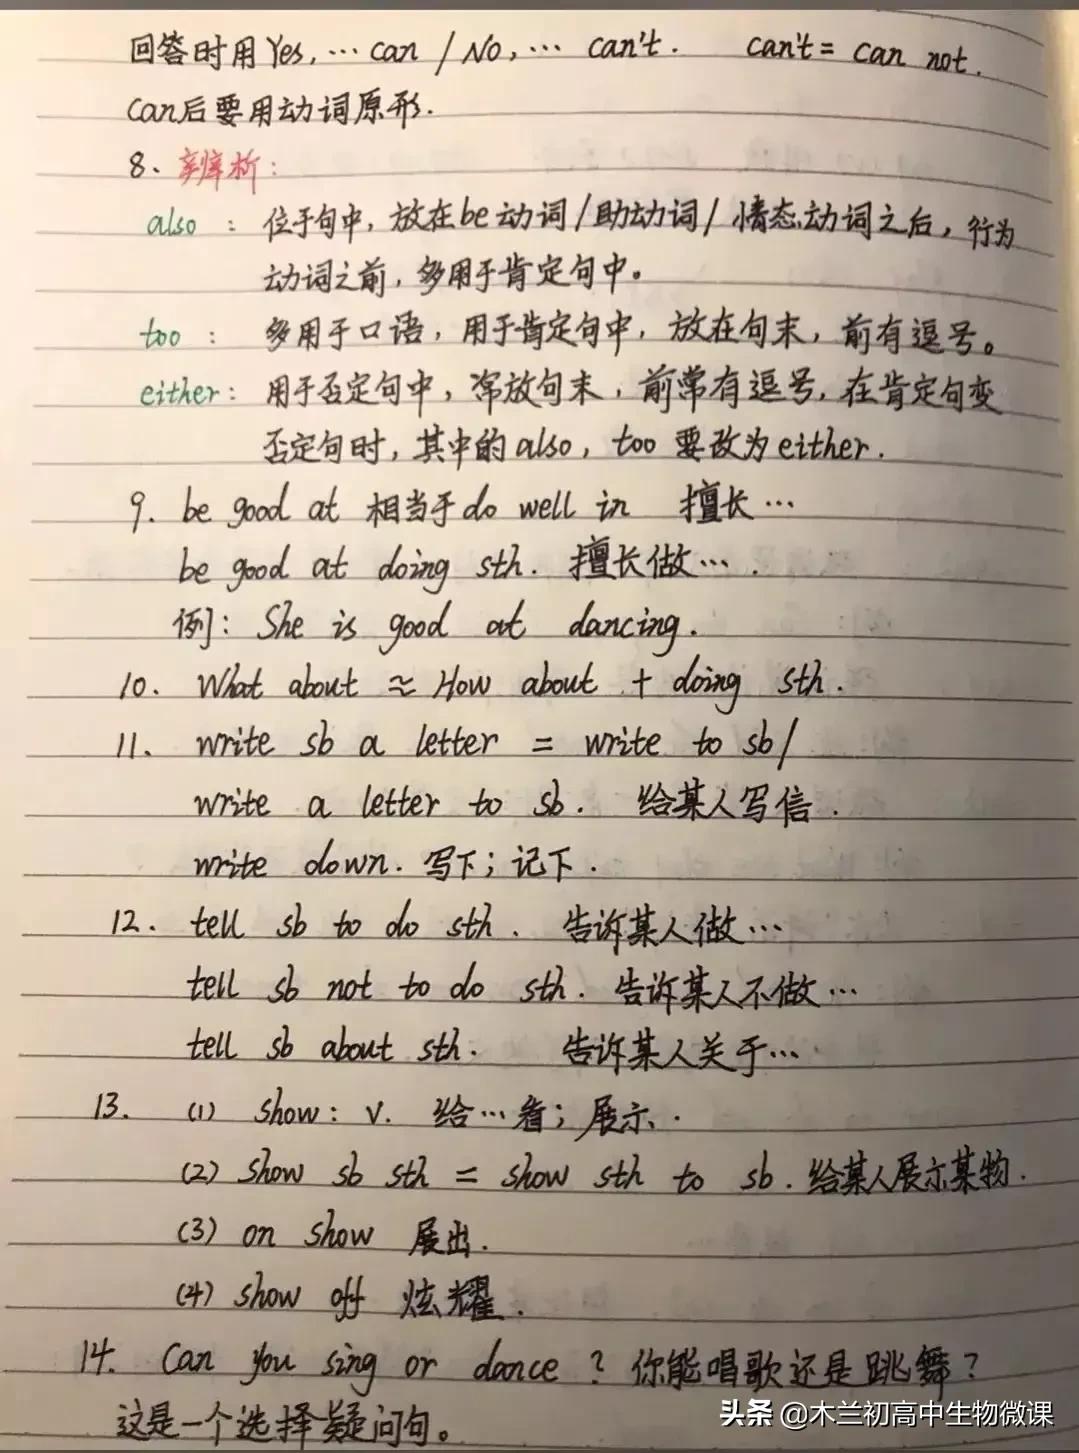 回答时用Yes, … can / No, … can't. can't = can not.
can后要用动词原形.
8. 辨析:
also : 位于句中, 放在be动词/助动词/情态动词之后, 行为
动词之前, 多用于肯定句中。
too : 多用于口语, 用于肯定句中, 放在句末, 前有逗号。
either: 用于否定句中, 常放句末, 前常有逗号, 在肯定句变
否定句时, 其中的also, too 要改为either.
9. be good at 相当于do well in 擅长…
be good at doing sth. 擅长做….
例: She is good at dancing.
10. What about ≈ How about + doing sth.
11. write sb a letter = write to sb/
write a letter to sb. 给某人写信.
write down. 写下; 记下.
12. tell sb to do sth. 告诉某人做…
tell sb not to do sth. 告诉某人不做…
tell sb about sth. 告诉某人关于…
13. (1) show: v. 给…看; 展示.
(2) show sb sth = show sth to sb. 给某人展示某物.
(3) on show 展出.
(4) show off 炫耀.
14. Can you sing or dance ? 你能唱歌还是跳舞?
这是一个选择疑问句。
头条 @木兰初高中生物微课